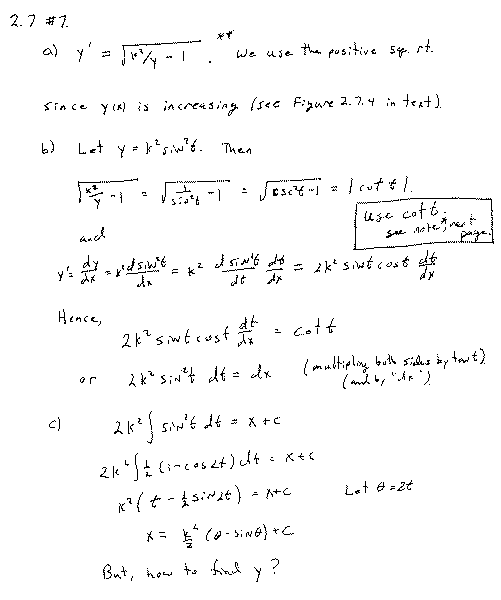 2.7 #7.
a) y' = √(k²/y - 1) . ** We use the positive sq. rt.
since y(x) is increasing (see Figure 2.7.4 in text).
b) Let y = k² sin² t. Then
√(k²/y - 1) = √(1/sin² t - 1) = √(csc² t - 1) = |cot t|.
use cot t;
see note*, next page.
and
y' = dy/dx = k² d sin² t/dx = k² d sin² t/dt dt/dx = 2k² sin t cos t dt/dx
Hence,
2k² sin t cos t dt/dx = cot t
or 2k² sin² t dt = dx (multiplying both sides by tan t)
(and by "dx")
c) 2k² ∫ sin² t dt = x + c
2k² ∫ ½ (1 - cos 2t) dt = x + c
k² (t - ½ sin 2t) = x + c Let θ = 2t
x = k²/2 (θ - sin θ) + C
But, how to find y?